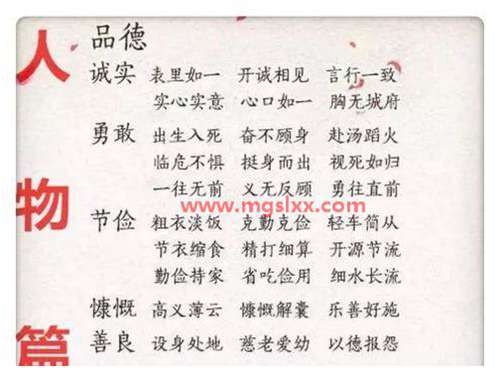 人物篇
品德
诚实 表里如一 开诚相见 言行一致
实心实意 心口如一 胸无城府
勇敢 出生入死 奋不顾身 赴汤蹈火
临危不惧 挺身而出 视死如归
一往无前 义无反顾 勇往直前
www.mgslxx.com
节俭 粗衣淡饭 克勤克俭 轻车简从
节衣缩食 精打细算 开源节流
勤俭持家 省吃俭用 细水长流
慷慨 高义薄云 慷慨解囊 乐善好施
善良 设身处地 慈老爱幼 以德报怨